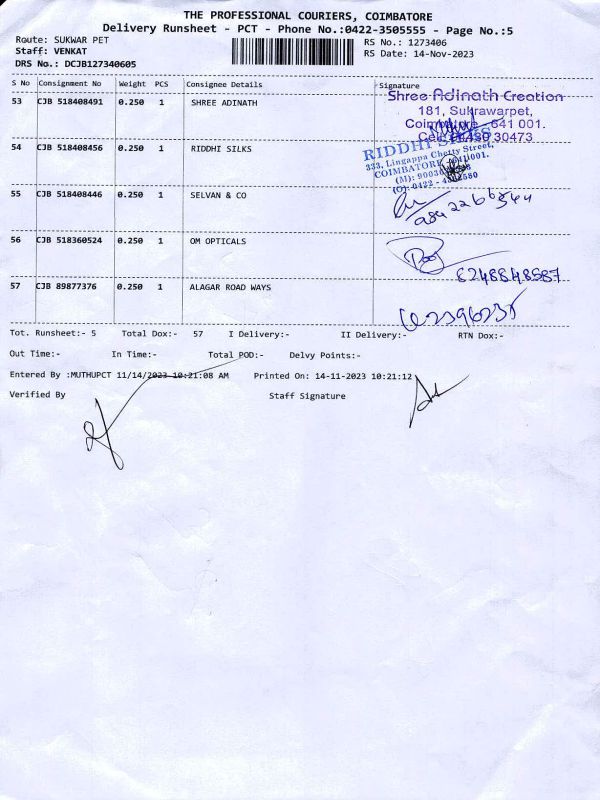 THE PROFESSIONAL COURIERS, COIMBATORE
Delivery Runsheet - PCT - Phone No.:0422-3505555 - Page No.:5
Route: SUKWAR PET
Staff: VENKAT
DRS No.: DCJB127340605
RS No.: 1273406
RS Date: 14-Nov-2023
S No Consignment No Weight PCS Consignee Details Signature
53 CJB 518408491 0.250 1 SHREE ADINATH
Shree Adinath Creation
181, Sukrawarpet,
Coimbatore - 641 001.
30473
54 CJB 518408456 0.250 1 RIDDHI SILKS
RIDDHI SILKS
333, Lingappa Chetty Street,
COIMBATORE - 641001.
55 CJB 518408446 0.250 1 SELVAN & CO
56 CJB 518360524 0.250 1 OM OPTICALS
57 CJB 89877376 0.250 1 ALAGAR ROAD WAYS
Tot. Runsheet:- 5 Total Dox:- 57 I Delivery:- II Delivery:- RTN Dox:-
Out Time:- In Time:- Total POD:- Delvy Points:-
Entered By :MUTHUPCT 11/14/2023 10:21:08 AM Printed On: 14-11-2023 10:21:12
Verified By Staff Signature